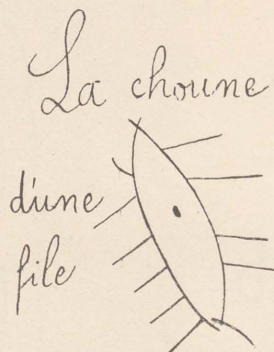 La choune
d'une
file